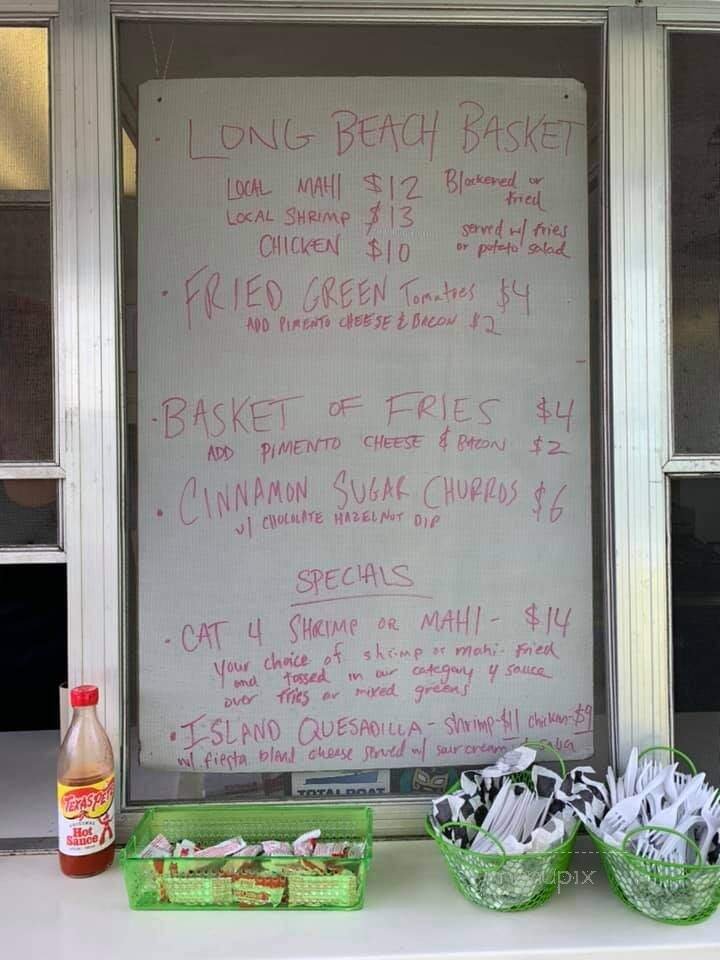 · LONG BEACH BASKET
LOCAL MAHI $12 Blackened or
fried
LOCAL SHRIMP $13
served w/ fries
CHICKEN $10 or potato salad
· FRIED GREEN Tomatoes $4
ADD PIMENTO CHEESE & BACON $2
· BASKET OF FRIES $4
ADD PIMENTO CHEESE & BACON $2
· CINNAMON SUGAR CHURROS $6
w/ CHOCOLATE HAZELNUT DIP
SPECIALS
· CAT 4 SHRIMP OR MAHI - $14
Your choice of shrimp or mahi - fried
and tossed in our category 4 sauce
over fries or mixed greens
· ISLAND QUESADILLA - shrimp-$11 chicken-$9
w/ fiesta blend cheese served w/ sour cream
TOTALBOAT
TEXAS PETE
ORIGINAL
Hot
Sauce